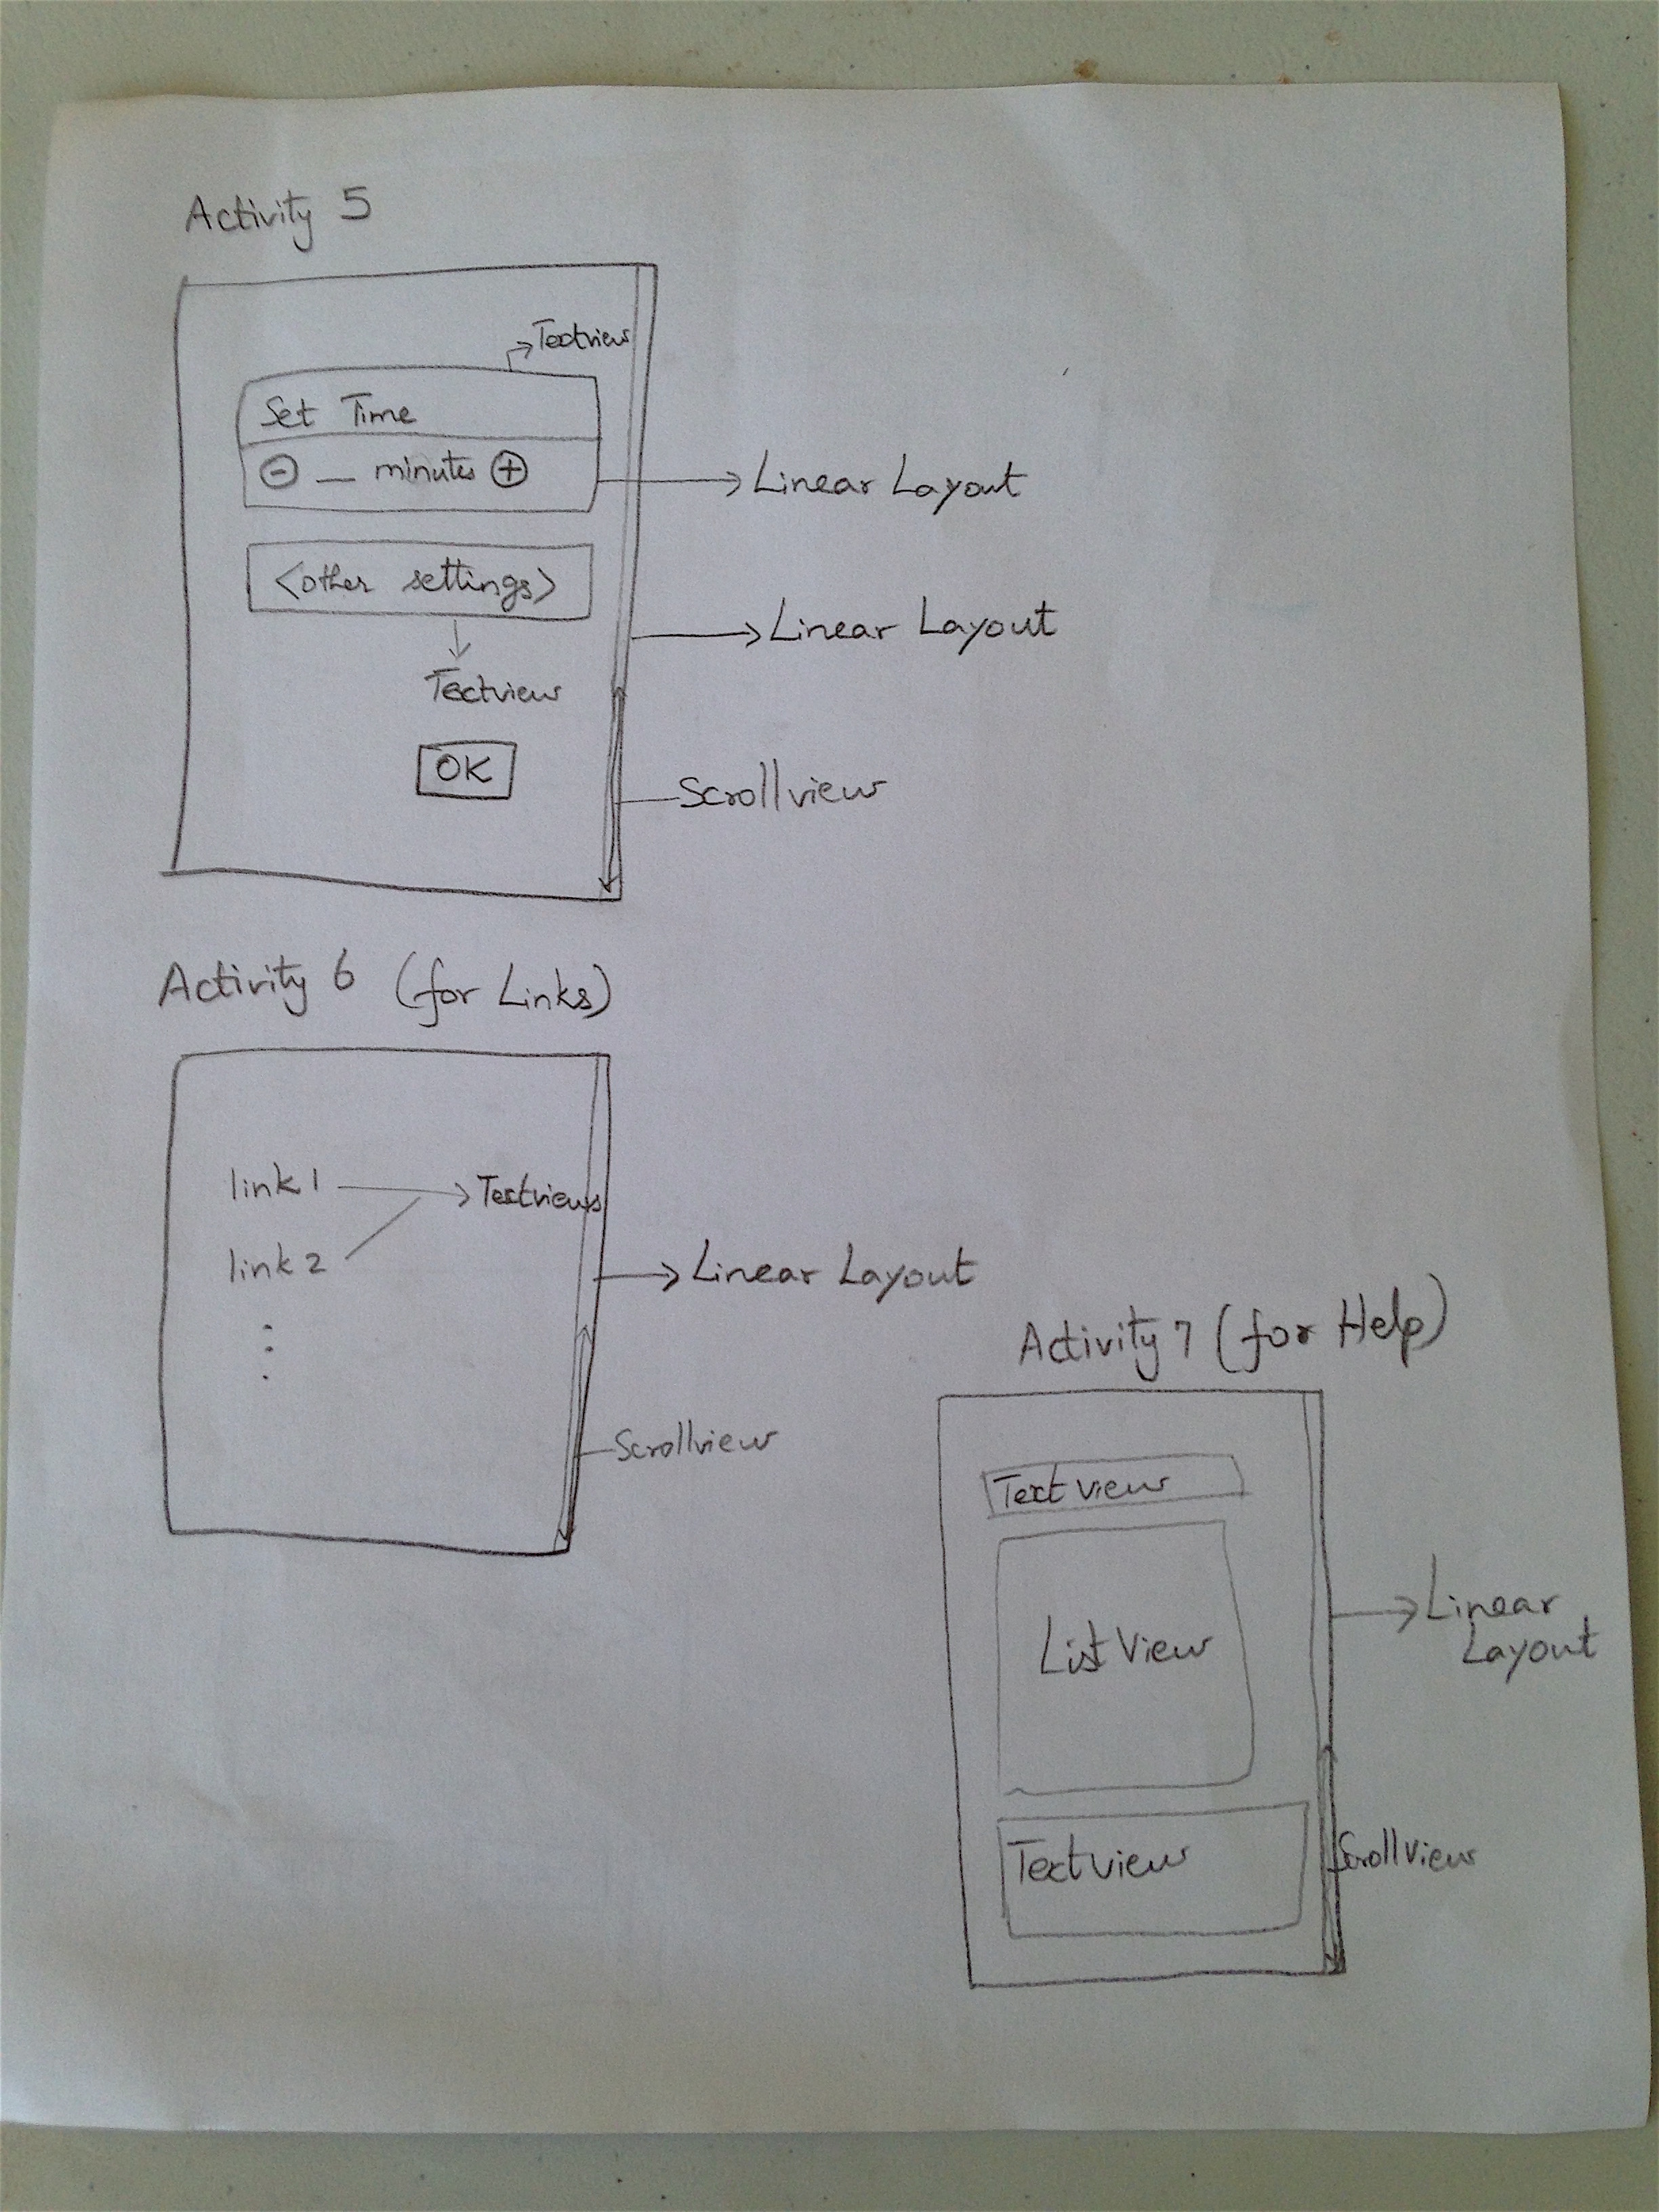 Activity 5
Textview
Set Time
- __ minutes +
Linear Layout
<other settings>
Linear Layout
Textview
OK
Scrollview
Activity 6 (for Links)
link 1
Textviews
link 2
Linear Layout
Scrollview
Activity 7 (for Help)
Textview
List View
Linear
Layout
Textview
Scrollview